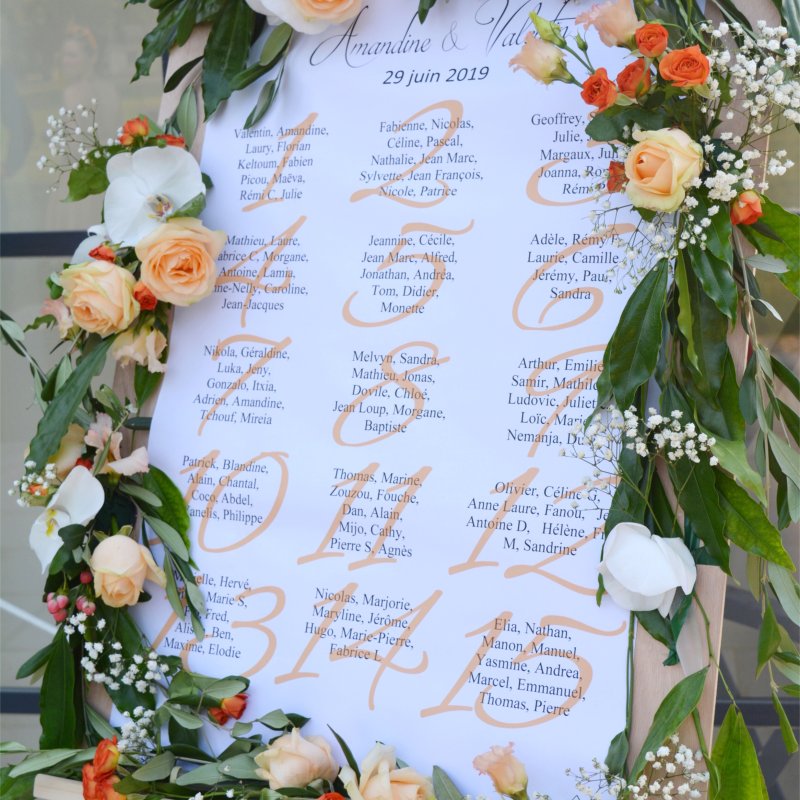 Amandine & Valentin
29 juin 2019
1
Valentin, Amandine,
Laury, Florian
Keltoum, Fabien
Picou, Maëva,
Rémi C, Julie
2
Fabienne, Nicolas,
Céline, Pascal,
Nathalie, Jean Marc,
Sylvette, Jean François,
Nicole, Patrice
3
Geoffrey,
Julie,
Margaux,
Joanna,
Rémi
4
Mathieu, Laure,
C, Morgane,
Antoine, Lamia,
Caroline,
Jean-Jacques
5
Jeannine, Cécile,
Jean Marc, Alfred,
Jonathan, Andréa,
Tom, Didier,
Monette
6
Adèle, Rémy
Laurie, Camille
Jérémy, Paul
Sandra
7
Nikola, Géraldine,
Luka, Jeny,
Gonzalo, Itxia,
Adrien, Amandine,
Tchouf, Mireia
8
Melvyn, Sandra,
Mathieu, Jonas,
Dovile, Chloé,
Jean Loup, Morgane,
Baptiste
9
Arthur, Emilie
Samir,
Ludovic,
Loïc,
Nemanja,
10
Patrick, Blandine,
Alain, Chantal,
Coco, Abdel,
Philippe
11
Thomas, Marine,
Zouzou, Fouche,
Dan, Alain,
Mijo, Cathy,
Pierre S, Agnès
12
Olivier, Céline G,
Anne Laure, Fanou,
Antoine D, Hélène,
M, Sandrine
13
Hervé,
Marie S,
Fred,
Ben,
Maxime, Elodie
14
Nicolas, Marjorie,
Maryline, Jérôme,
Hugo, Marie-Pierre,
Fabrice L
15
Elia, Nathan,
Manon, Manuel,
Yasmine, Andrea,
Marcel, Emmanuel,
Thomas, Pierre